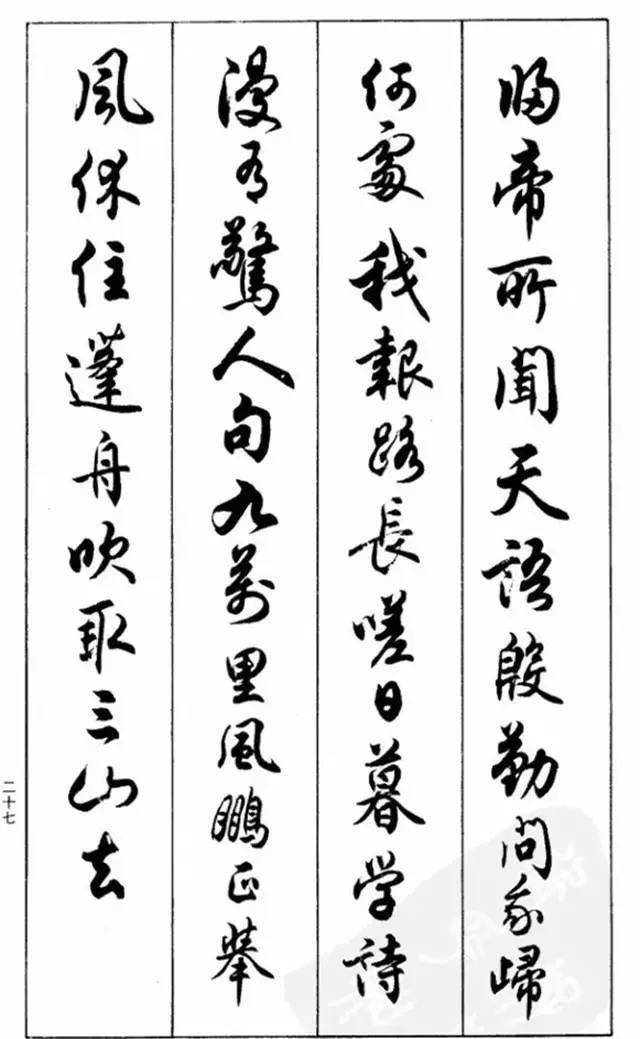 归帝所聞天語殷勤問我歸
何處我報路長嗟日暮学詩
漫有驚人句九萬里風鵬正舉
風休住蓬舟吹取三山去
二十七